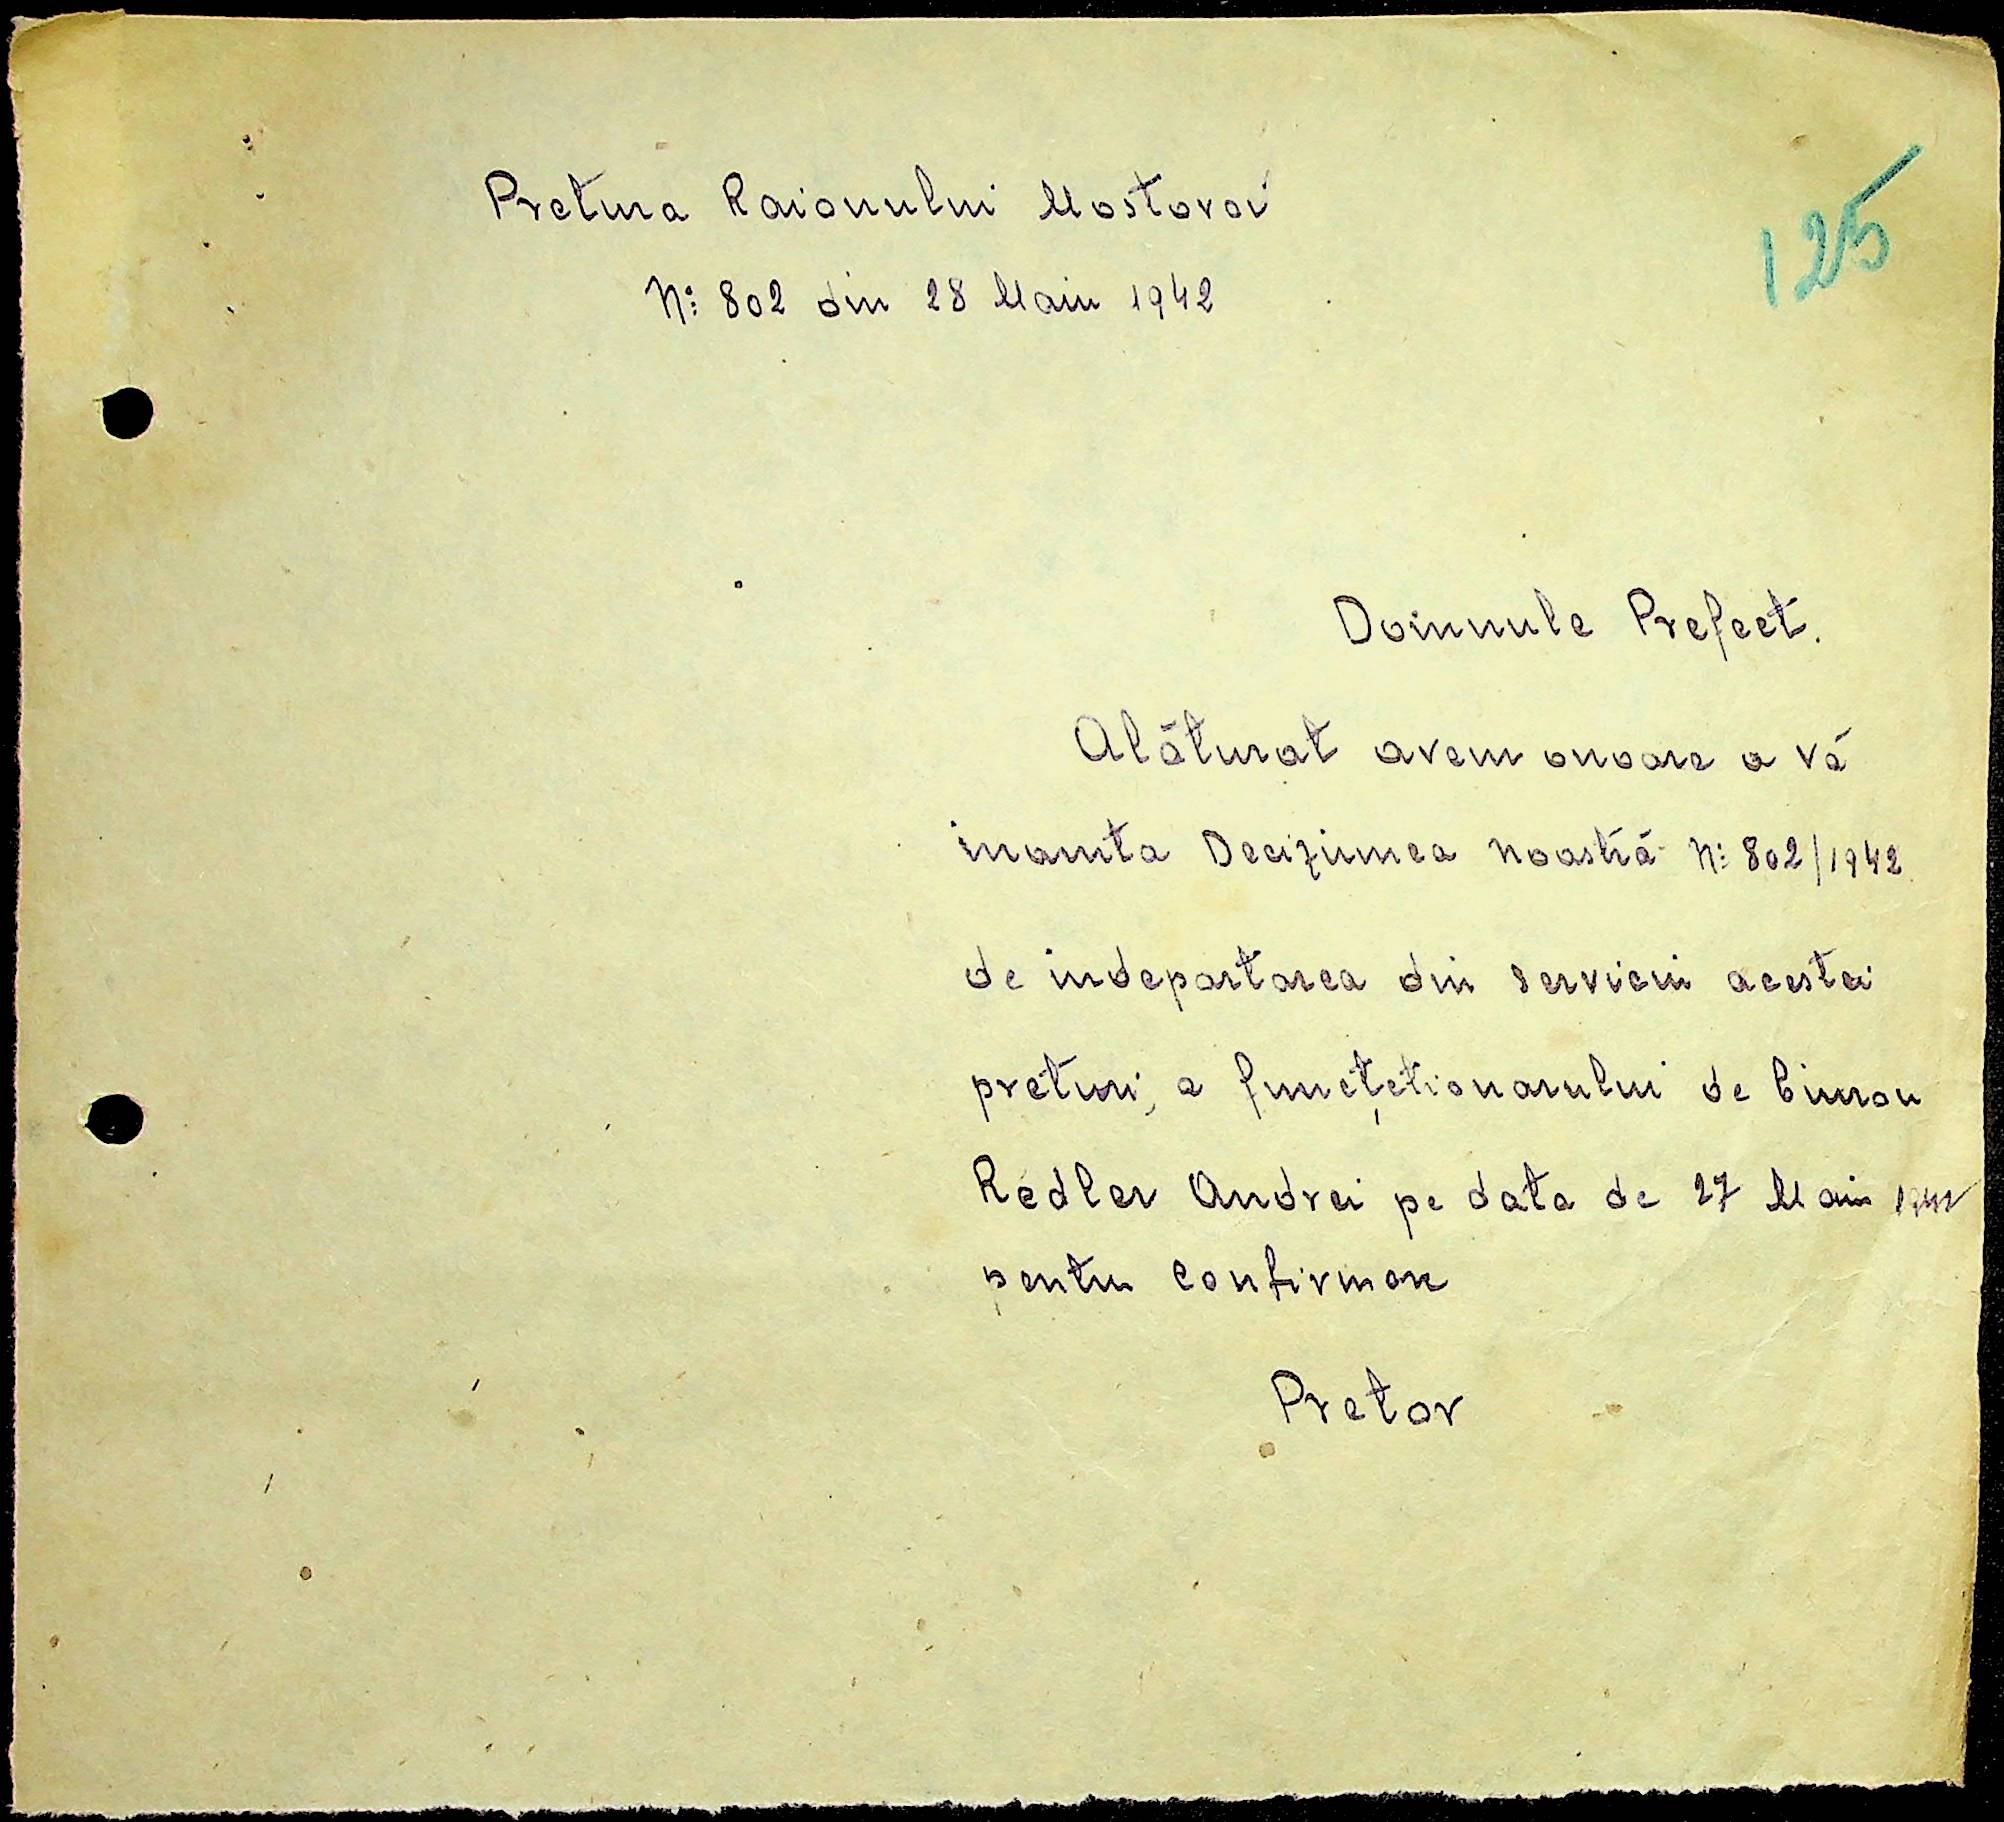 Pretura Raionului Mostovoi
125
N: 802 din 28 Maiu 1942
Domnule Prefect.
Alăturat avem onoare a vă
inainta Deciziunea noastră N: 802/1942
de indepartarea din serviciu acestei
preturi, a funcțctionarului de birou
Redler Andrei pe data de 27 Maiu 1942
pentru confirmare
Pretor